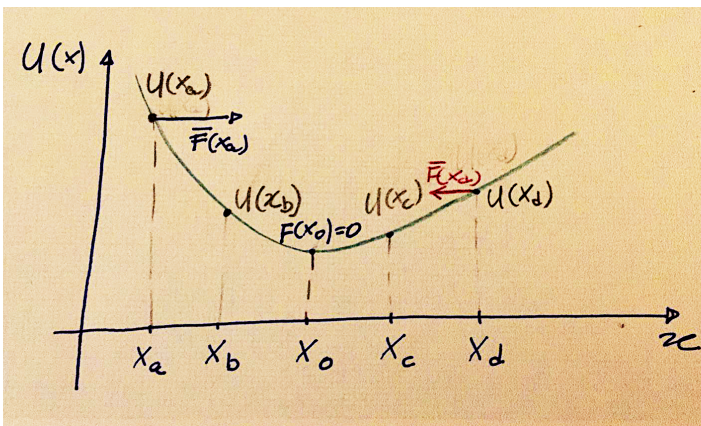 U(x)
U(xₐ)
F̅(xₐ)
U(x_b)
F(x₀)=0
U(x_c)
F̅(x_d)
U(x_d)
U(x_d)
xₐ x_b x₀ x_c x_d
x